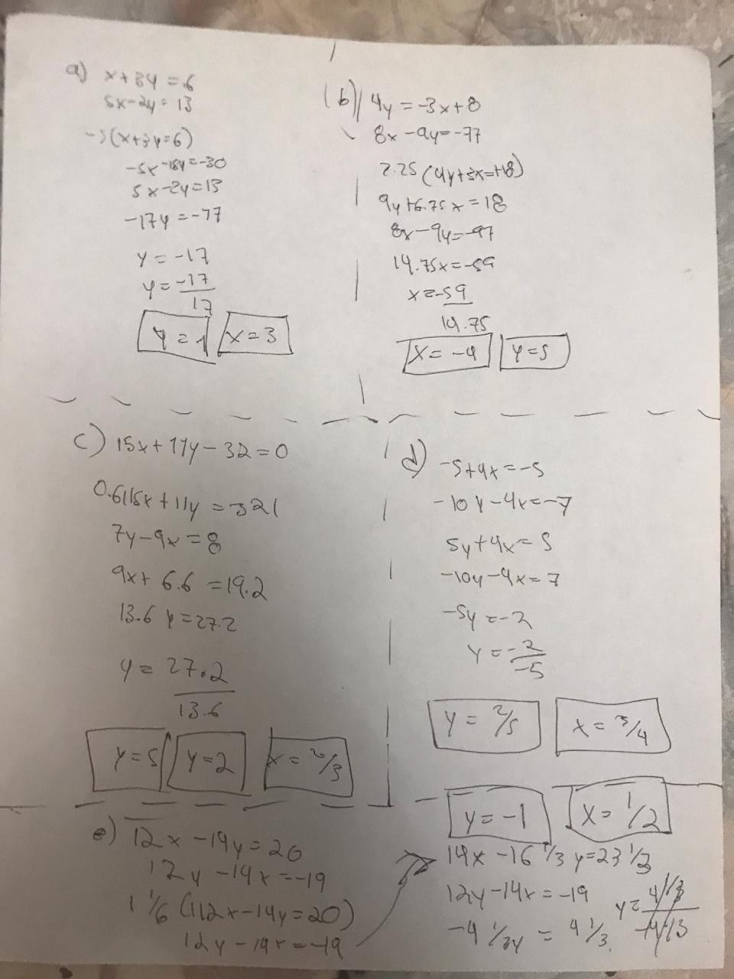 a) x+3y=6
5x-2y=13
-5(x+3y=6)
-5x-15y=-30
5x-2y=13
-17y=-17
y=-17
y=-17
17
y=1 x=3
(b) 4y=-3x+8
8x-9y=-77
2.25(4y+3x=+8)
9y+6.75x=18
8x-9y=-77
14.75x=-59
x=-59
14.75
x=-4 y=5
c) 15x+11y-32=0
7y-9x=8
9x+6.6=19.2
13.6y=27.2
y=27.2
13.6
y=5 y=2 x=2/3
d) -5+4x=-5
-10y-4x=-7
5y+4x=5
-10y-4x=7
-5y=-2
y=-2
-5
y=2/5 x=3/4
y=-1 x=1/2
e) 12x-14y=20
12y-14x=-19
1 1/6(12x-14y=20)
12y-14x=-19
14x-16 1/3y=23 1/3
12y-14x=-19
-4 1/3y=4 1/3